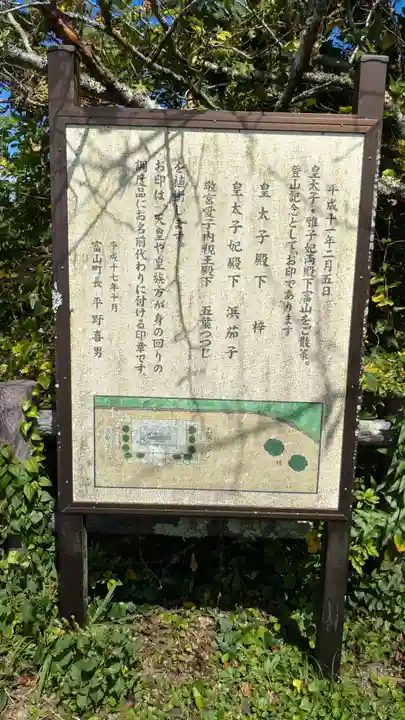 平成十一年二月五日
皇太子・雅子妃両殿下富山をご散策。
登山記念としてお印であります
皇太子殿下 梓
皇太子妃殿下 浜茄子
敬宮愛子内親王殿下 五葉つつじ
を植樹します。
お印は、天皇や皇族方が身の回りの
調度品にお名前代わりに付ける印章です。
平成十七年十月
富山町長 平野喜男